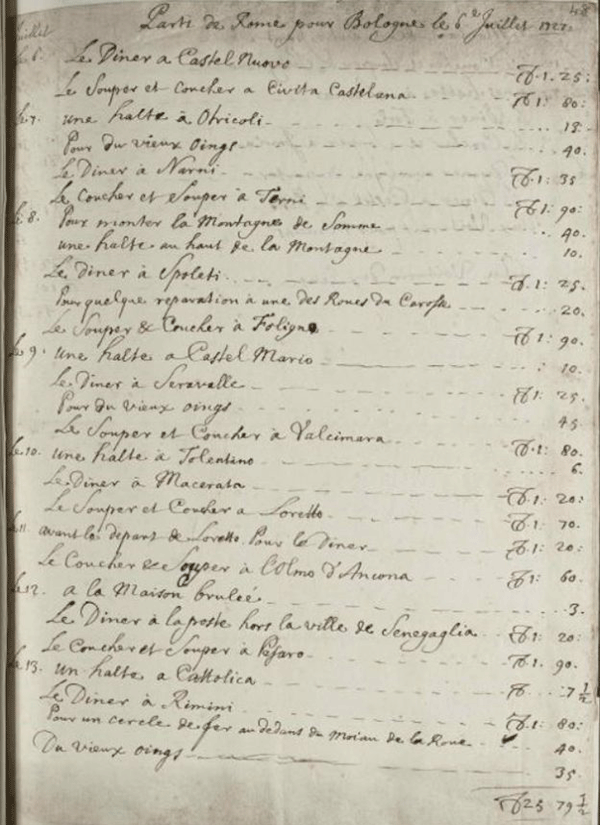 48
Parti de Rome pour Bologne le 6e Juillet 1727.
Juillet
Le 6. Le Diner a Castel Nuovo 1. 25:
Le Souper et Coucher a Civita Castelana 1: 80:
Le 7. une halte à Otricoli 15.
Pour du vieux Oings 40.
Le Diner à Narni 1: 35
Le Coucher et Souper à Terni 1: 90:
Le 8. Pour monter la Montagne de Somme 40.
une halte au haut de la Montagne 10.
Le diner à Spoleti 1: 25.
Pour quelque reparation à une des Roues du Carosse 20.
Le Souper & Coucher à Foligno 1: 90.
Le 9. Une halte a Castel Mario 10.
Le Diner à Seravalle 1: 25.
Pour du vieux oings 45
Le Souper et Coucher à Valcimara 1: 80.
Le 10. une halte à Tolentino 6.
Le Diner à Macerata 1: 20:
Le Souper et Coucher a Loretto 1: 70.
Le 11. avant le depart de Loretto Pour le Diner 1: 20:
Le Coucher & Souper à l'Olmo d'Ancona 1: 60.
Le 12. a la Maison bruleé 3.
Le Diner à la peste hors la ville de Senegaglia 1: 20:
Le Coucher et Souper à Pesaro 1: 90.
Le 13. un halte a Cattolica 7 1/2
Le Diner à Rimini 1: 80:
Pour un cercle de fer au dedans du Moiau de la Roue 40.
Du vieux oings 35.
23 79 1/2